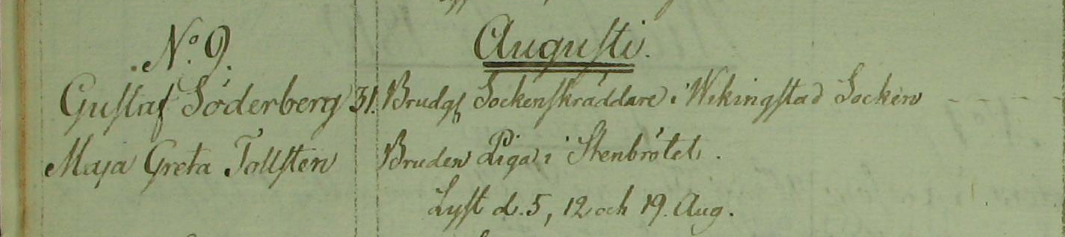 No. 9.
Augusti.
Gustaf Söderberg 31. Brudg. Sockenskräddare i Wikingstad Socken
Maja Greta Tollsten Bruden Piga i Stenbrötet.
Lyst d. 5, 12 och 19. Aug.